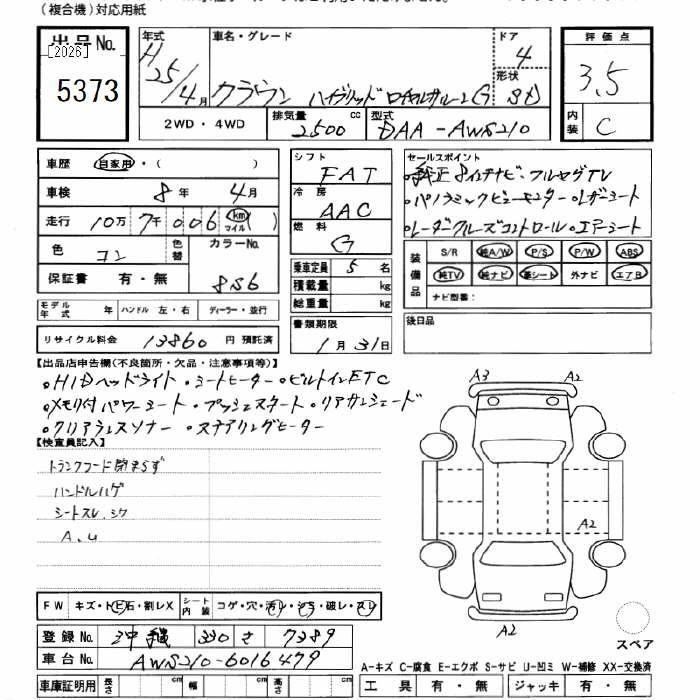 (複合機)対応用紙
出品No. [2026] 5373
年式 H25/4月
車名・グレード クラウン ハイブリッド ロイヤルサルーンG
ドア 4
形状 Sd
評価点 3.5
内装 C
2WD・4WD
排気量 2500 cc
型式 DAA-AWS210
車歴 自家用・( )
車検 8年 4月
走行 10万 7千 006 km マイル ( )
色 コン 色替 カラーNo. 8S6
保証書 有・無
モデル年式 年 ハンドル 左・右 ディーラー・並行
リサイクル料金 13860 円 預託済
シフト FAT
冷房 AAC
燃料 G
乗車定員 5 名
積載量 kg
総重量 kg
書類期限 1月31日
セールスポイント
・純正8インチナビ・フルセグTV
・パノラミックビューモニター・レザーシート
・レーダークルーズコントロール・エアーシート
装備品 S/R 純A/W P/S P/W ABS
純TV 純ナビ 革シート 外ナビ エアB
ナビ型番:
後日品
【出品店申告欄(不良箇所・欠品・注意事項等)】
・HIDヘッドライト・シートヒーター・ビルトインETC
・メモリ付パワーシート・プッシュスタート・リアサンシェード
・クリアランスソナー・ステアリングヒーター
【検査員記入】
トランクフード閉まらず
ハンドルハゲ
シートスレ.シワ
A.U
A3 A2
A2
A2
スペア
FW キズ・トビ石・割レX シート内装 コゲ・穴・汚レ・シミ・破レ・スレ
登録No. 沖縄 330 さ 7389
車台No. AWS210-6016479
A-キズ C-腐食 E-エクボ S-サビ U-凹ミ W-補修 XX-交換済
車庫証明用 長さ cm 幅 cm 高さ cm 工具 有・無 ジャッキ 有・無